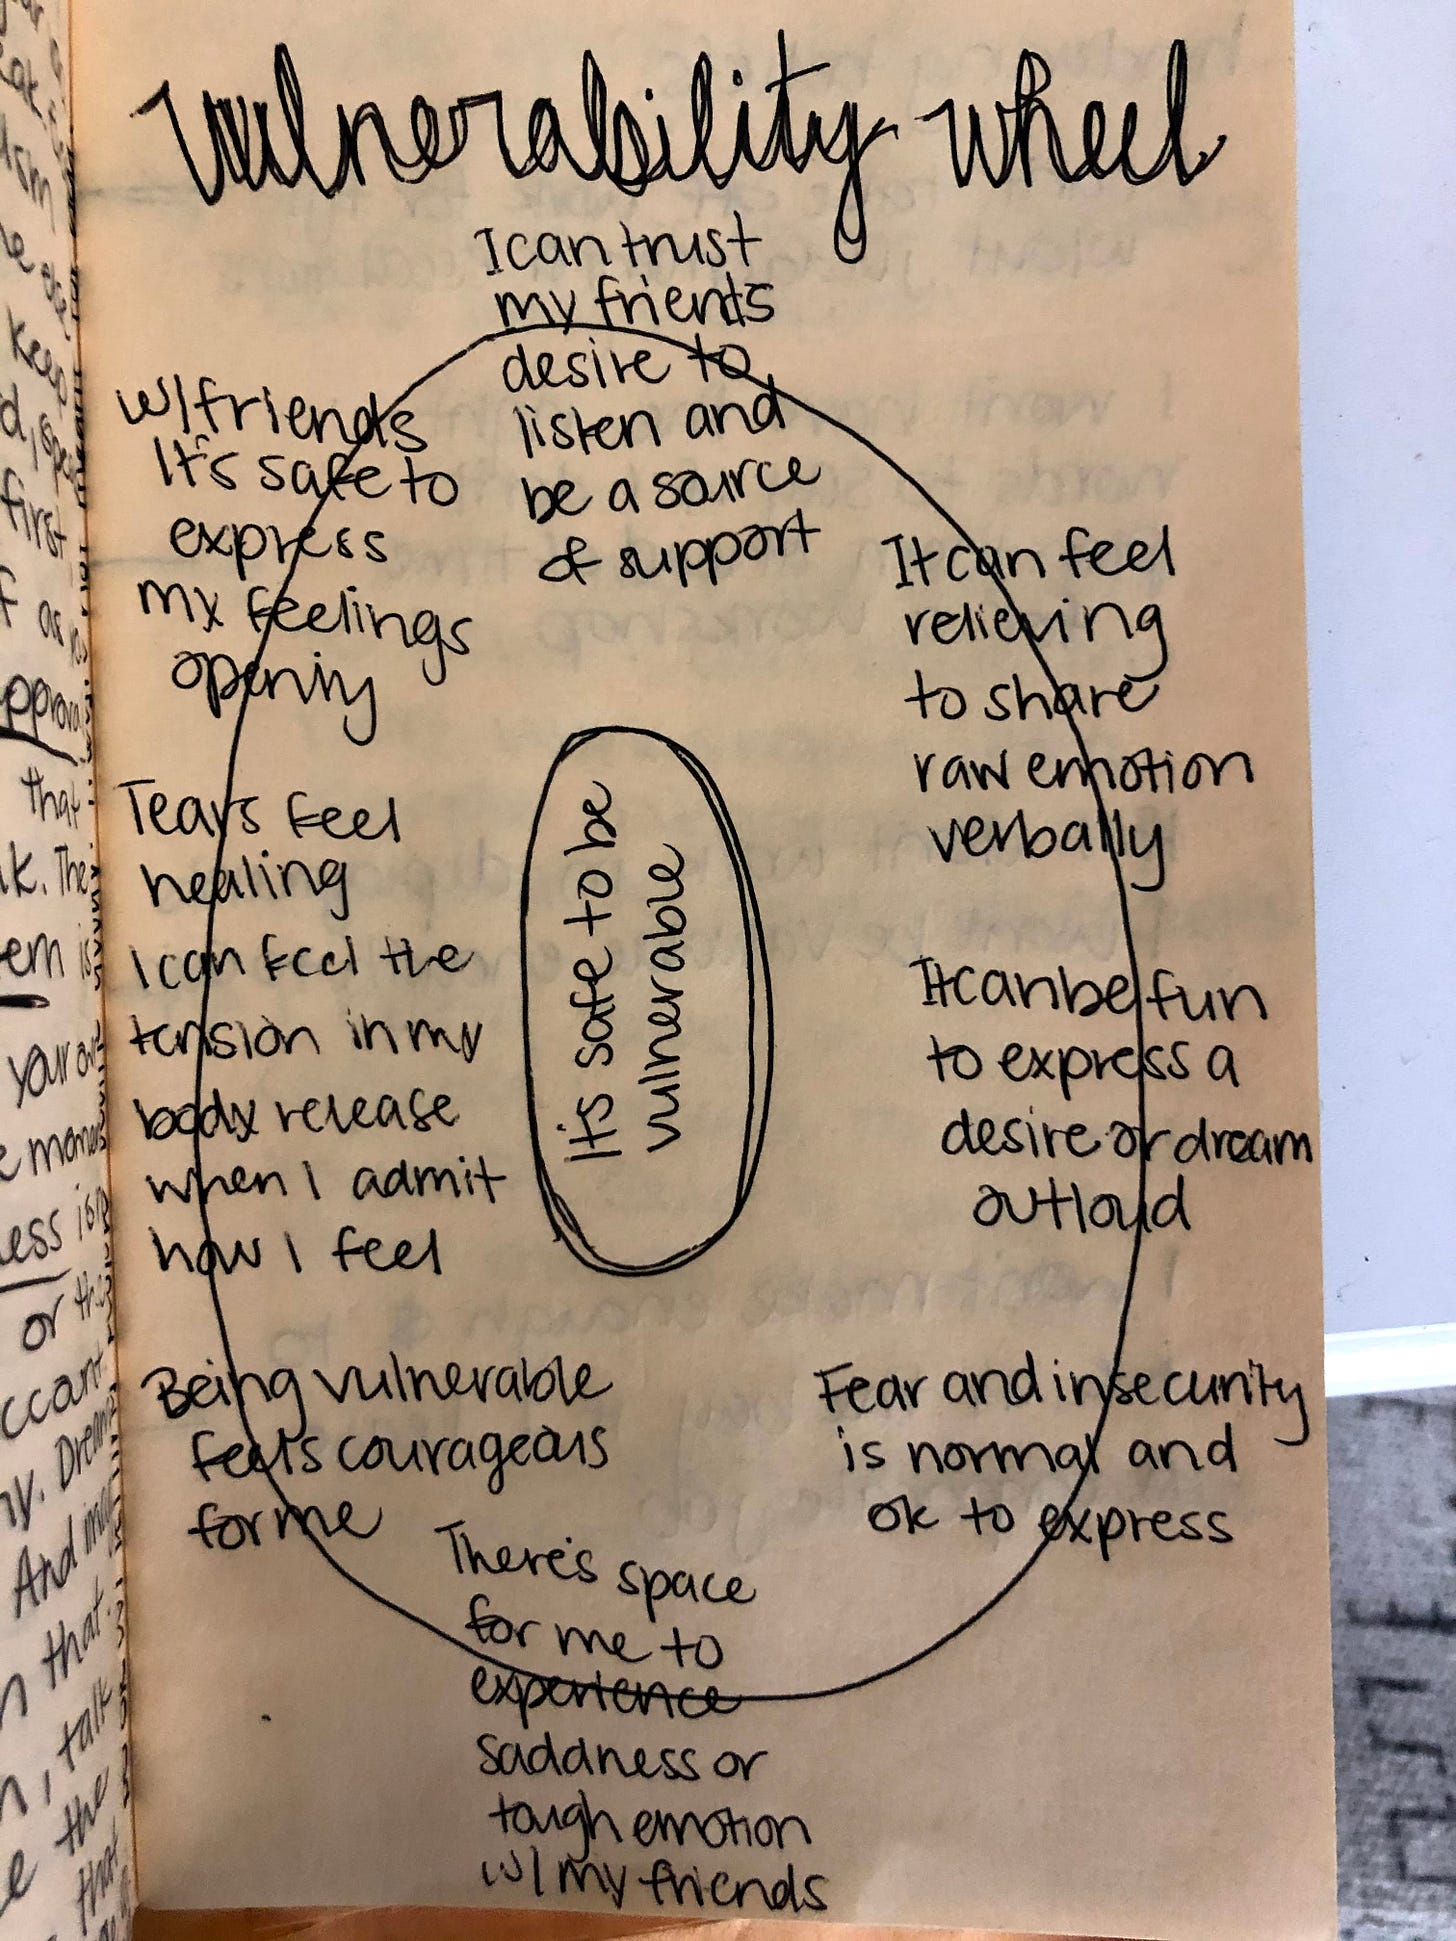 Vulnerability wheel
I can trust
my frients
desire to
listen and
be a source
of support
It can feel
relieving
to share
raw emotion
verbally
It can be fun
to express a
desire or dream
outloud
Fear and insecurity
is normal and
ok to express
There's space
for me to
experience
saddness or
tough emotion
w/ my friends
Being vulnerable
feels courageous
for me
Tears feel
healing
I can feel the
tension in my
body release
when I admit
how I feel
w/ friends
It's safe to
express
my feelings
openly
It's safe to be
vulnerable
first
as
approva
that
The
em is
your
ess
or the
And
that
talk
the
that